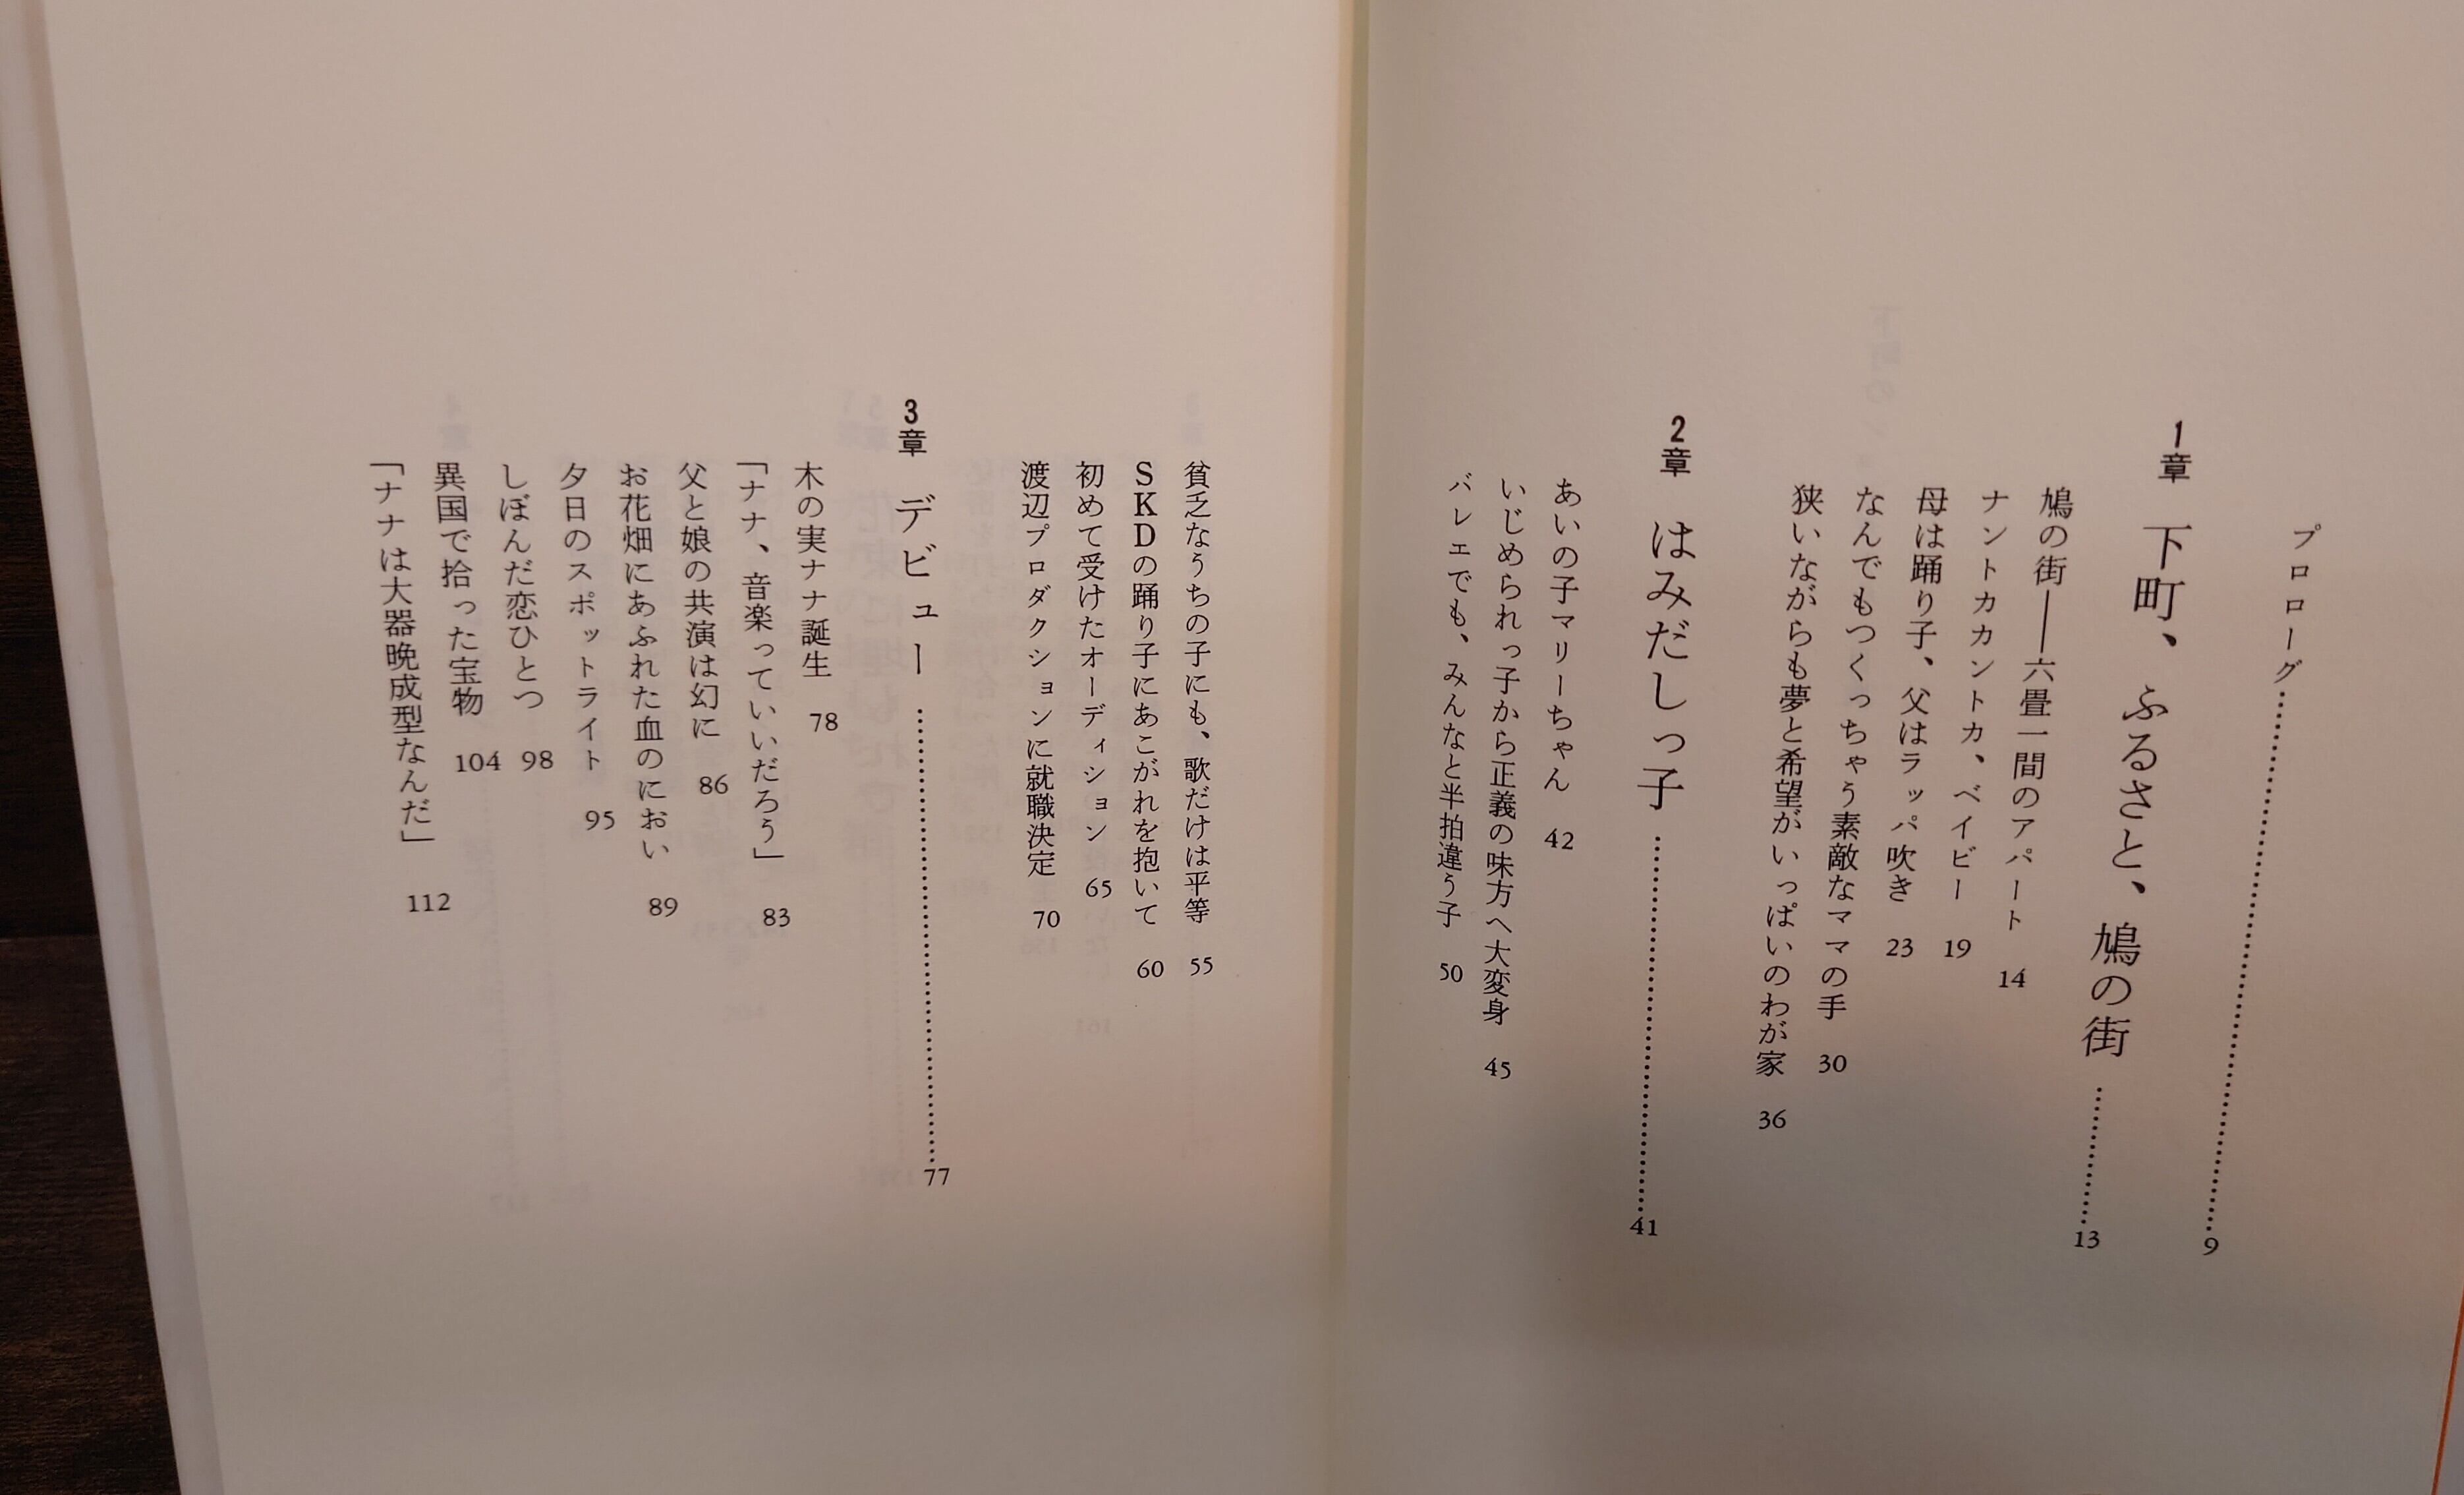 プロローグ……………………9
1章 下町、ふるさと、鳩の街……13
鳩の街――六畳一間のアパート 14
ナントカカントカ、ベイビー 19
母は踊り子、父はラッパ吹き 23
なんでもつくっちゃう素敵なママの手 30
狭いながらも夢と希望がいっぱいのわが家 36
2章 はみだしっ子……………………41
あいの子マリーちゃん 42
いじめられっ子から正義の味方へ大変身 45
バレエでも、みんなと半拍違う子 50
貧乏なうちの子にも、歌だけは平等 55
SKDの踊り子にあこがれを抱いて 60
初めて受けたオーディション 65
渡辺プロダクションに就職決定 70
3章 デビュー……………………77
木の実ナナ誕生 78
「ナナ、音楽っていいだろう」 83
父と娘の共演は幻に 86
お花畑にあふれた血のにおい 89
夕日のスポットライト 95
しぼんだ恋ひとつ 98
異国で拾った宝物 104
「ナナは大器晩成型なんだ」 112